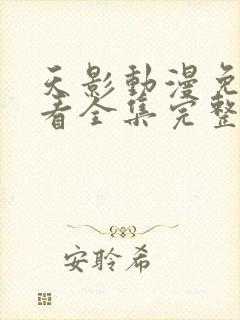 天影動漫免
看全集完整
安聆希